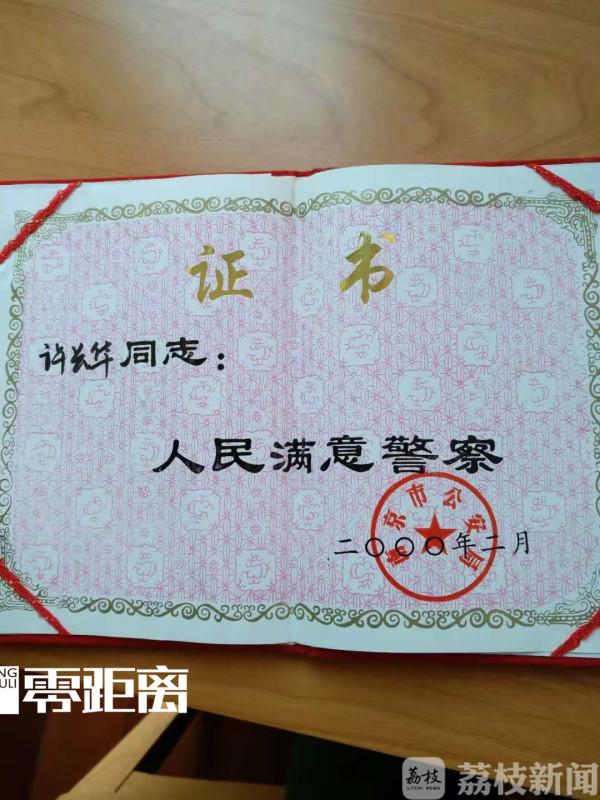 证书
许光华同志：
人民满意警察
南京市公安局
二〇〇〇年二月
NG
ULI
零距离
荔枝
LITCHI NEWS
荔枝新闻